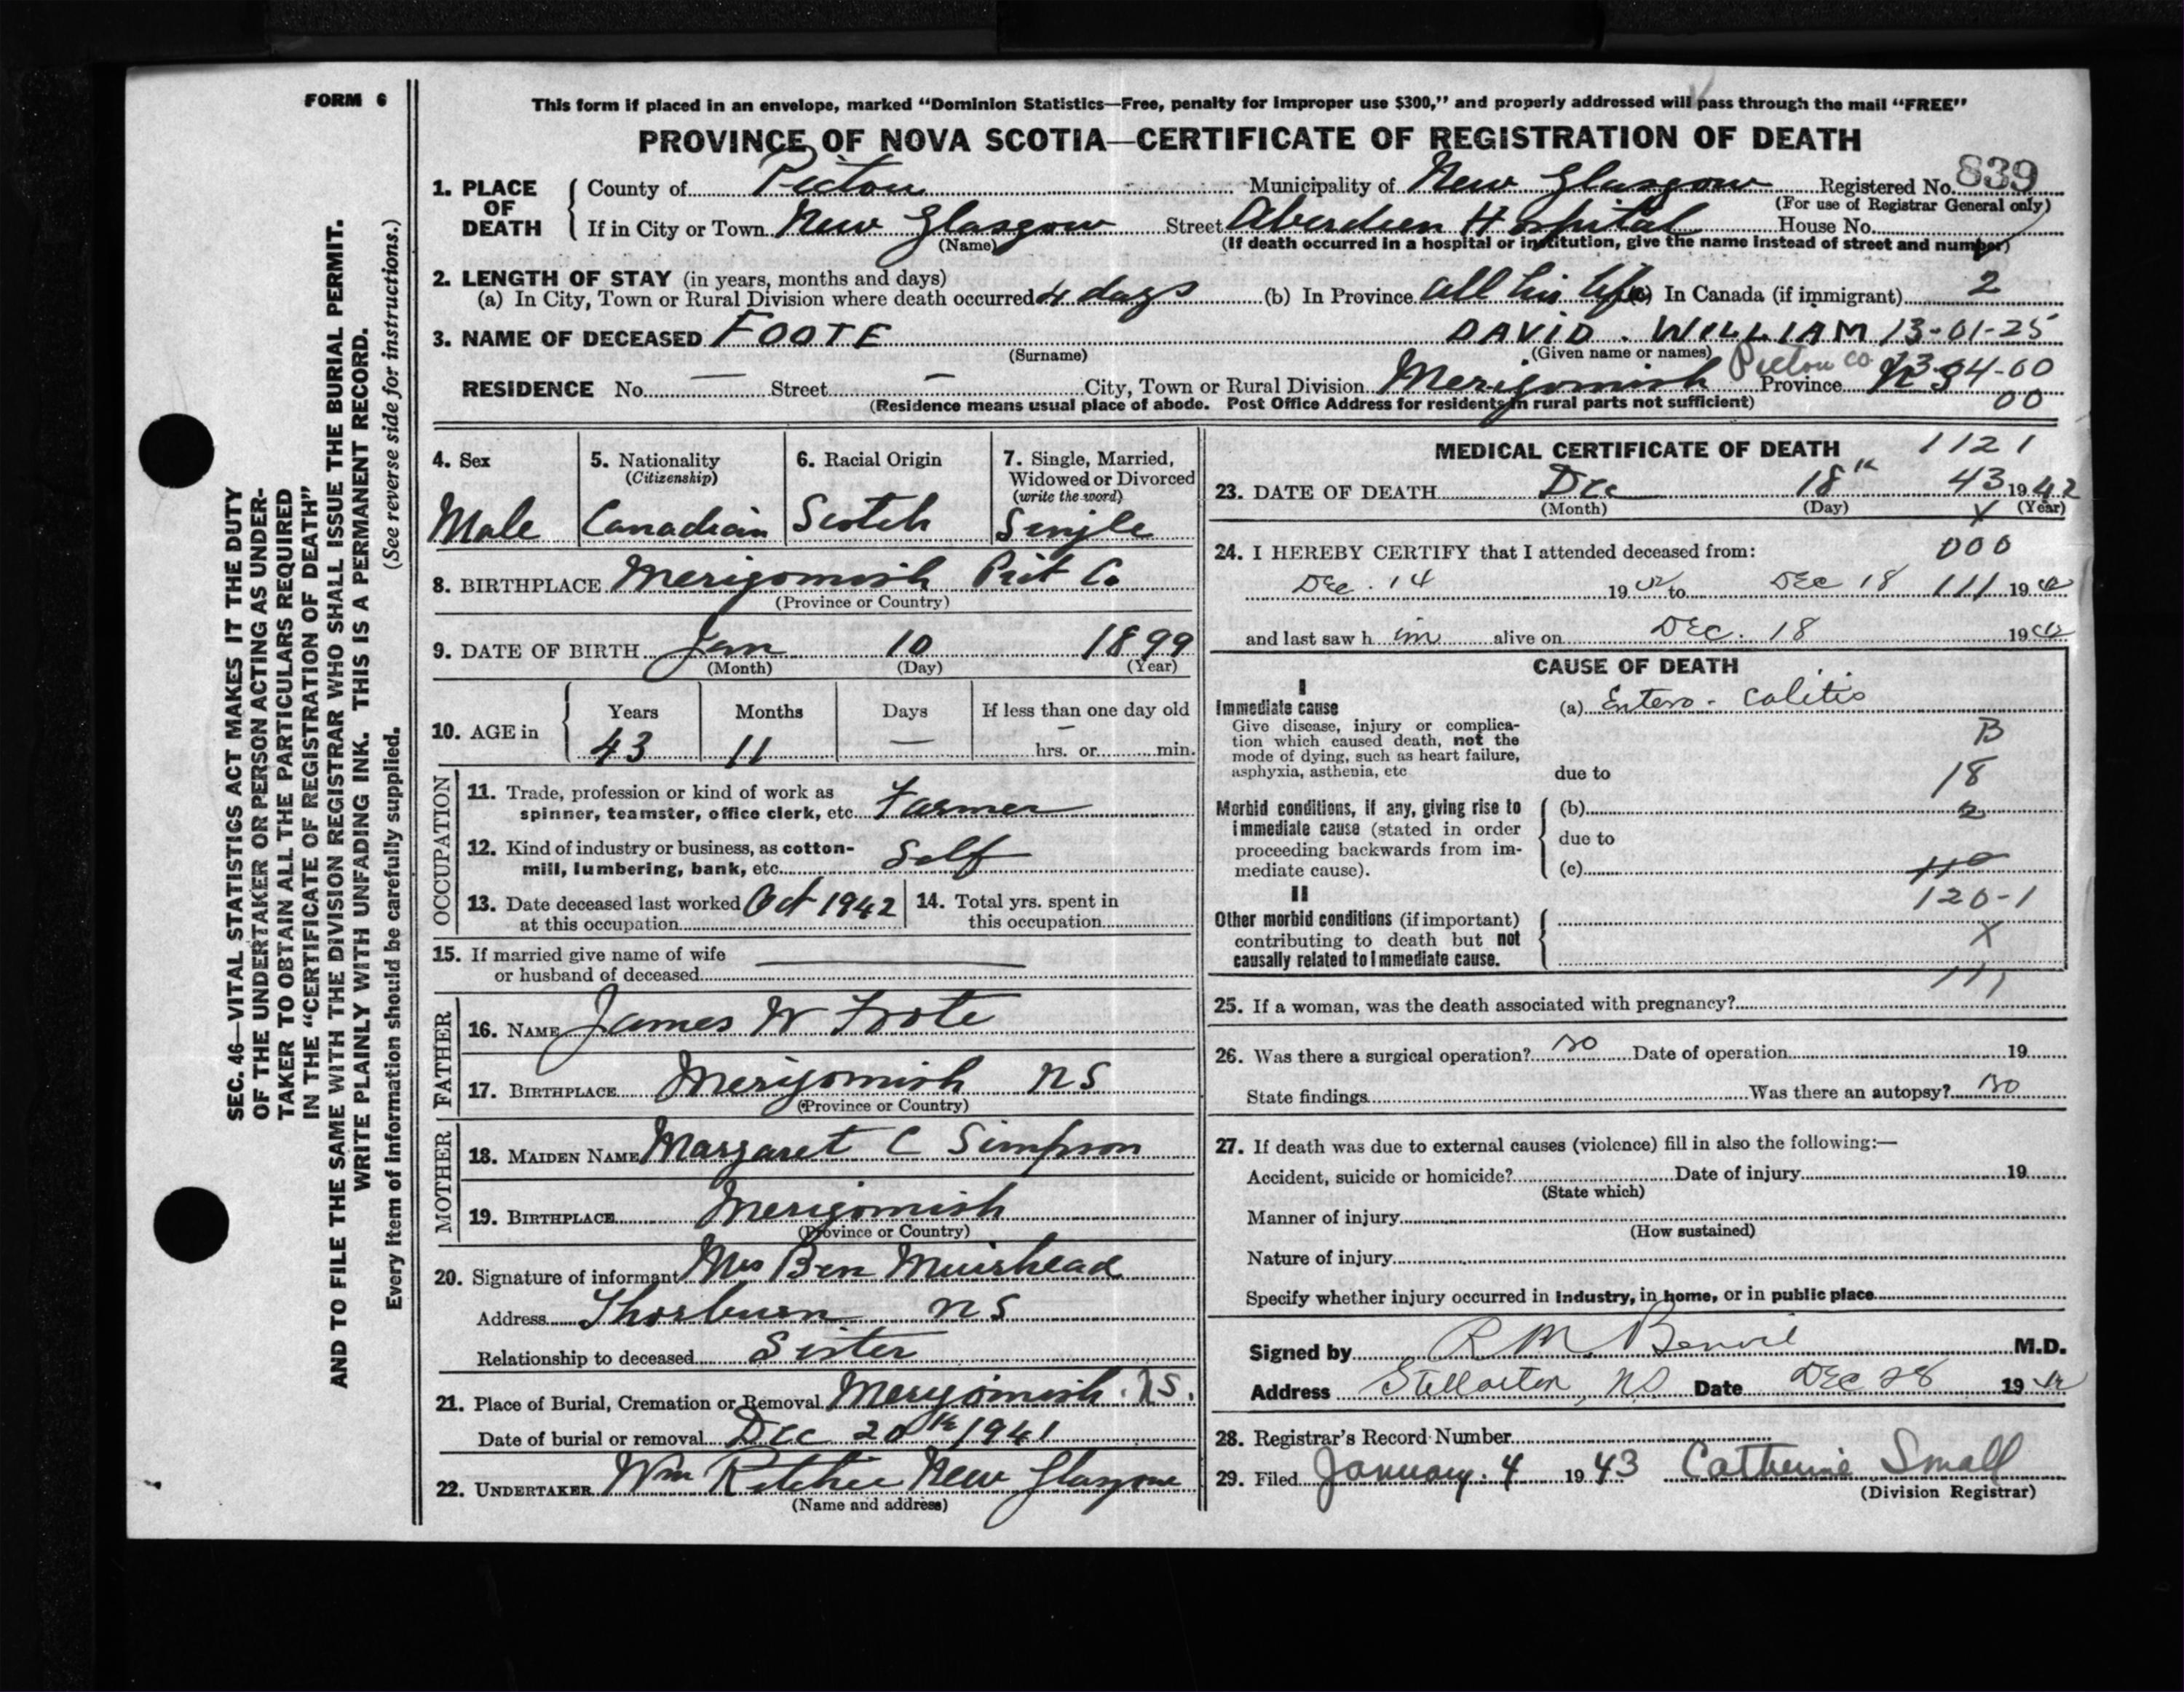 FORM 6
SEC. 46—VITAL STATISTICS ACT MAKES IT THE DUTY
OF THE UNDERTAKER OR PERSON ACTING AS UNDER-
TAKER TO OBTAIN ALL THE PARTICULARS REQUIRED
IN THE "CERTIFICATE OF REGISTRATION OF DEATH"
AND TO FILE THE SAME WITH THE DIVISION REGISTRAR WHO SHALL ISSUE THE BURIAL PERMIT.
WRITE PLAINLY WITH UNFADING INK. THIS IS A PERMANENT RECORD.
Every item of information should be carefully supplied. (See reverse side for instructions.)
This form if placed in an envelope, marked "Dominion Statistics—Free, penalty for improper use $300," and properly addressed will pass through the mail "FREE"
PROVINCE OF NOVA SCOTIA—CERTIFICATE OF REGISTRATION OF DEATH
1. PLACE OF DEATH County of Pictou Municipality of New Glasgow Registered No. 839
(For use of Registrar General only)
If in City or Town New Glasgow Street Aberdeen Hospital House No.
(Name) (If death occurred in a hospital or institution, give the name instead of street and number)
2. LENGTH OF STAY (in years, months and days)
(a) In City, Town or Rural Division where death occurred 4 days (b) In Province all his life (c) In Canada (if immigrant) 2
3. NAME OF DECEASED FOOTE DAVID. WILLIAM 13-01-25
(Surname) (Given name or names)
RESIDENCE No. — Street — City, Town or Rural Division Merigomish Pictou Co Province NS 04-00
(Residence means usual place of abode. Post Office Address for residents in rural parts not sufficient) 00
4. Sex Male
5. Nationality (Citizenship) Canadian
6. Racial Origin Scotch
7. Single, Married, Widowed or Divorced (write the word) Single
8. BIRTHPLACE Merigomish Pict Co
(Province or Country)
9. DATE OF BIRTH Jan 10 1899
(Month) (Day) (Year)
10. AGE in Years Months Days If less than one day old
43 11 — — hrs. or min.
OCCUPATION
11. Trade, profession or kind of work as
spinner, teamster, office clerk, etc. Farmer
12. Kind of industry or business, as cotton-
mill, lumbering, bank, etc. Self
13. Date deceased last worked Oct 1942
at this occupation
14. Total yrs. spent in
this occupation
15. If married give name of wife
or husband of deceased —
FATHER
16. NAME James W Foote
17. BIRTHPLACE Merigomish NS
(Province or Country)
MOTHER
18. MAIDEN NAME Margaret C Simpson
19. BIRTHPLACE Merigomish
(Province or Country)
20. Signature of informant Mrs Ben Muirhead
Address Thorburn NS
Relationship to deceased Sister
21. Place of Burial, Cremation or Removal Merigomish. NS.
Date of burial or removal Dec 20th 1941
22. UNDERTAKER Wm Ritchie New Glasgow
(Name and address)
MEDICAL CERTIFICATE OF DEATH 1121
23. DATE OF DEATH Dec 18th 43 1942
(Month) (Day) X (Year)
24. I HEREBY CERTIFY that I attended deceased from: 000
Dec. 14 1942 to DEC 18 111 1942
and last saw him alive on DEC. 18 1942
CAUSE OF DEATH
I
Immediate cause
Give disease, injury or complica-
tion which caused death, not the
mode of dying, such as heart failure,
asphyxia, asthenia, etc
(a) Entero-Colitis
B
due to 18
Morbid conditions, if any, giving rise to
immediate cause (stated in order
proceeding backwards from im-
mediate cause).
(b)
due to
(c)
120-1
II
Other morbid conditions (if important)
contributing to death but not
causally related to immediate cause.
X
111
25. If a woman, was the death associated with pregnancy?
26. Was there a surgical operation? no Date of operation 19
State findings Was there an autopsy? no
27. If death was due to external causes (violence) fill in also the following:—
Accident, suicide or homicide? Date of injury 19
(State which)
Manner of injury
(How sustained)
Nature of injury
Specify whether injury occurred in industry, in home, or in public place
Signed by R M. Benvie M.D.
Address Stellarton, NS Date DEC 28 1942
28. Registrar's Record Number
29. Filed January. 4 1943 Catherine Small
(Division Registrar)